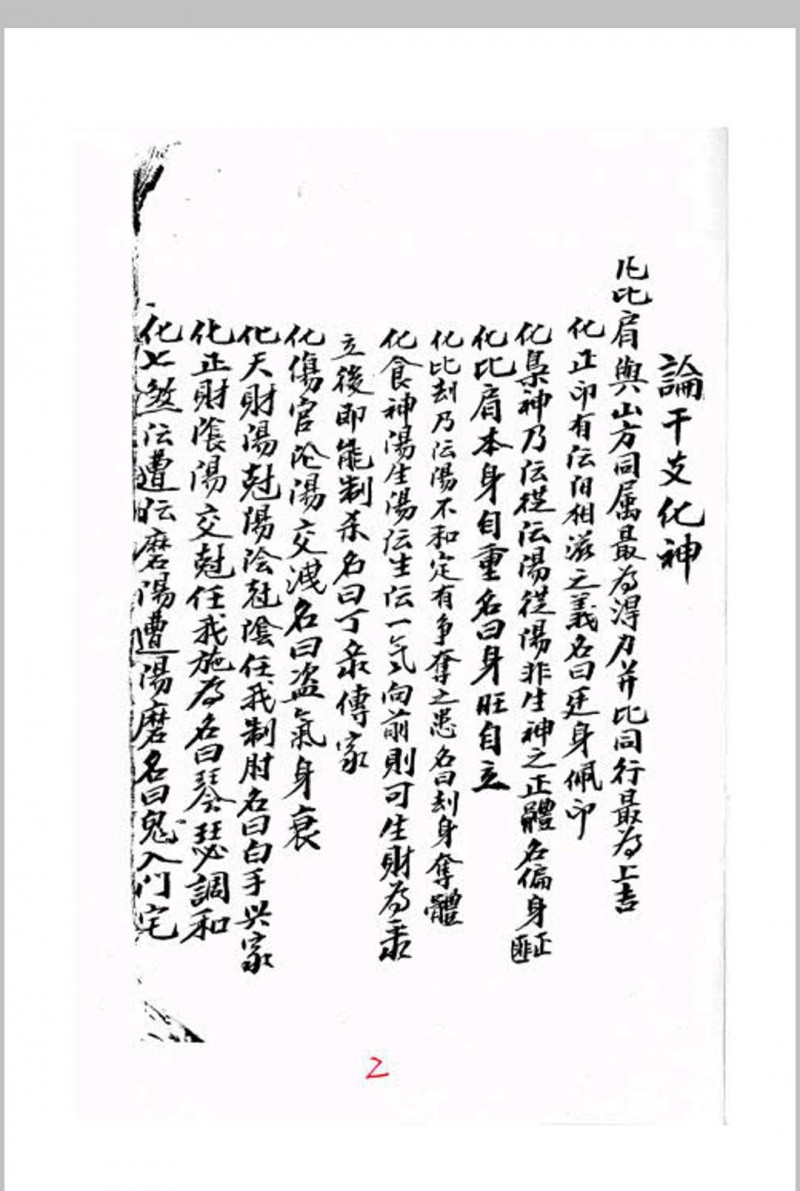 論干支化神
凡比肩與山方同属最為得力并比同行最為上吉
化正印有阴阳相滋之義名曰廷身佩印
化梟神乃阴從阴陽從陽非生神之正體名偏身匪正
化比肩本身自重名曰身旺自立
化比刦乃阴陽不和定有争奪之患名曰刦身奪體
化食神陽生陽阴生阴一气向前則可生財為
立後即能制杀名曰丁傳家
化傷官阴陽交洩名曰盗氣身衰
化天財陽尅陽陰尅陰任我制肘名曰白手兴家
化正財陰陽交尅任我施為名曰琴瑟調和
化七煞阴遭阴磨陽遭陽磨名曰鬼入門宅
2